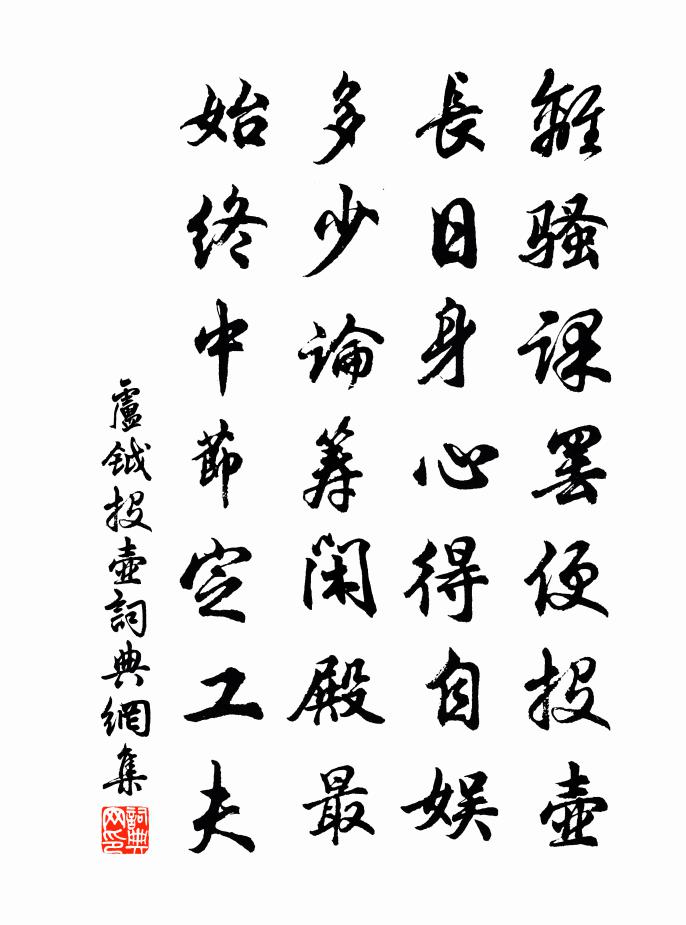 離騷課罷便投壺
長日身心得自娛
多少論筭閑殿最
始終中節定工夫
盧鉞投壺詞典網集
詞典网印